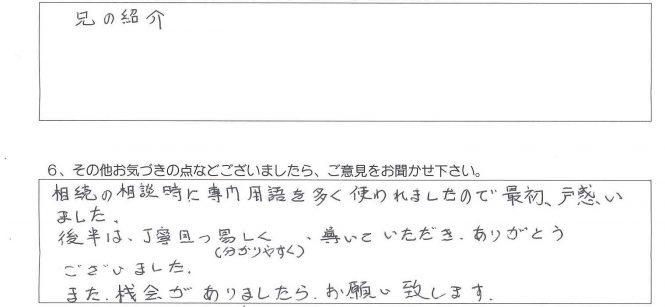 兄の紹介
6、その他お気づきの点などございましたら、ご意見をお聞かせ下さい。
相続の相談時に専門用語を多く使われましたので最初、戸惑い
ました。
後半は、丁寧且つ易しく、導いていただき、ありがとう
(分かりやすく)
ございました。
また、機会がありましたら、お願い致します。